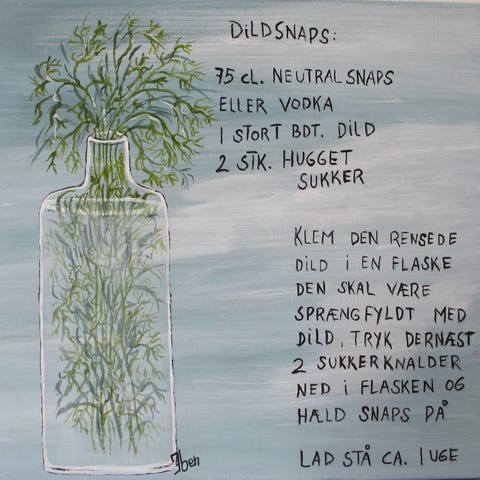 DILDSNAPS:
75 CL. NEUTRAL SNAPS
ELLER VODKA
1 STORT BDT. DILD
2 STK. HUGGET
SUKKER
KLEM DEN RENSEDE
DILD I EN FLASKE
DEN SKAL VÆRE
SPRÆNGFYLDT MED
DILD, TRYK DERNÆST
2 SUKKERKNALDER
NED I FLASKEN OG
HÆLD SNAPS PÅ
LAD STÅ CA. 1 UGE
Iben